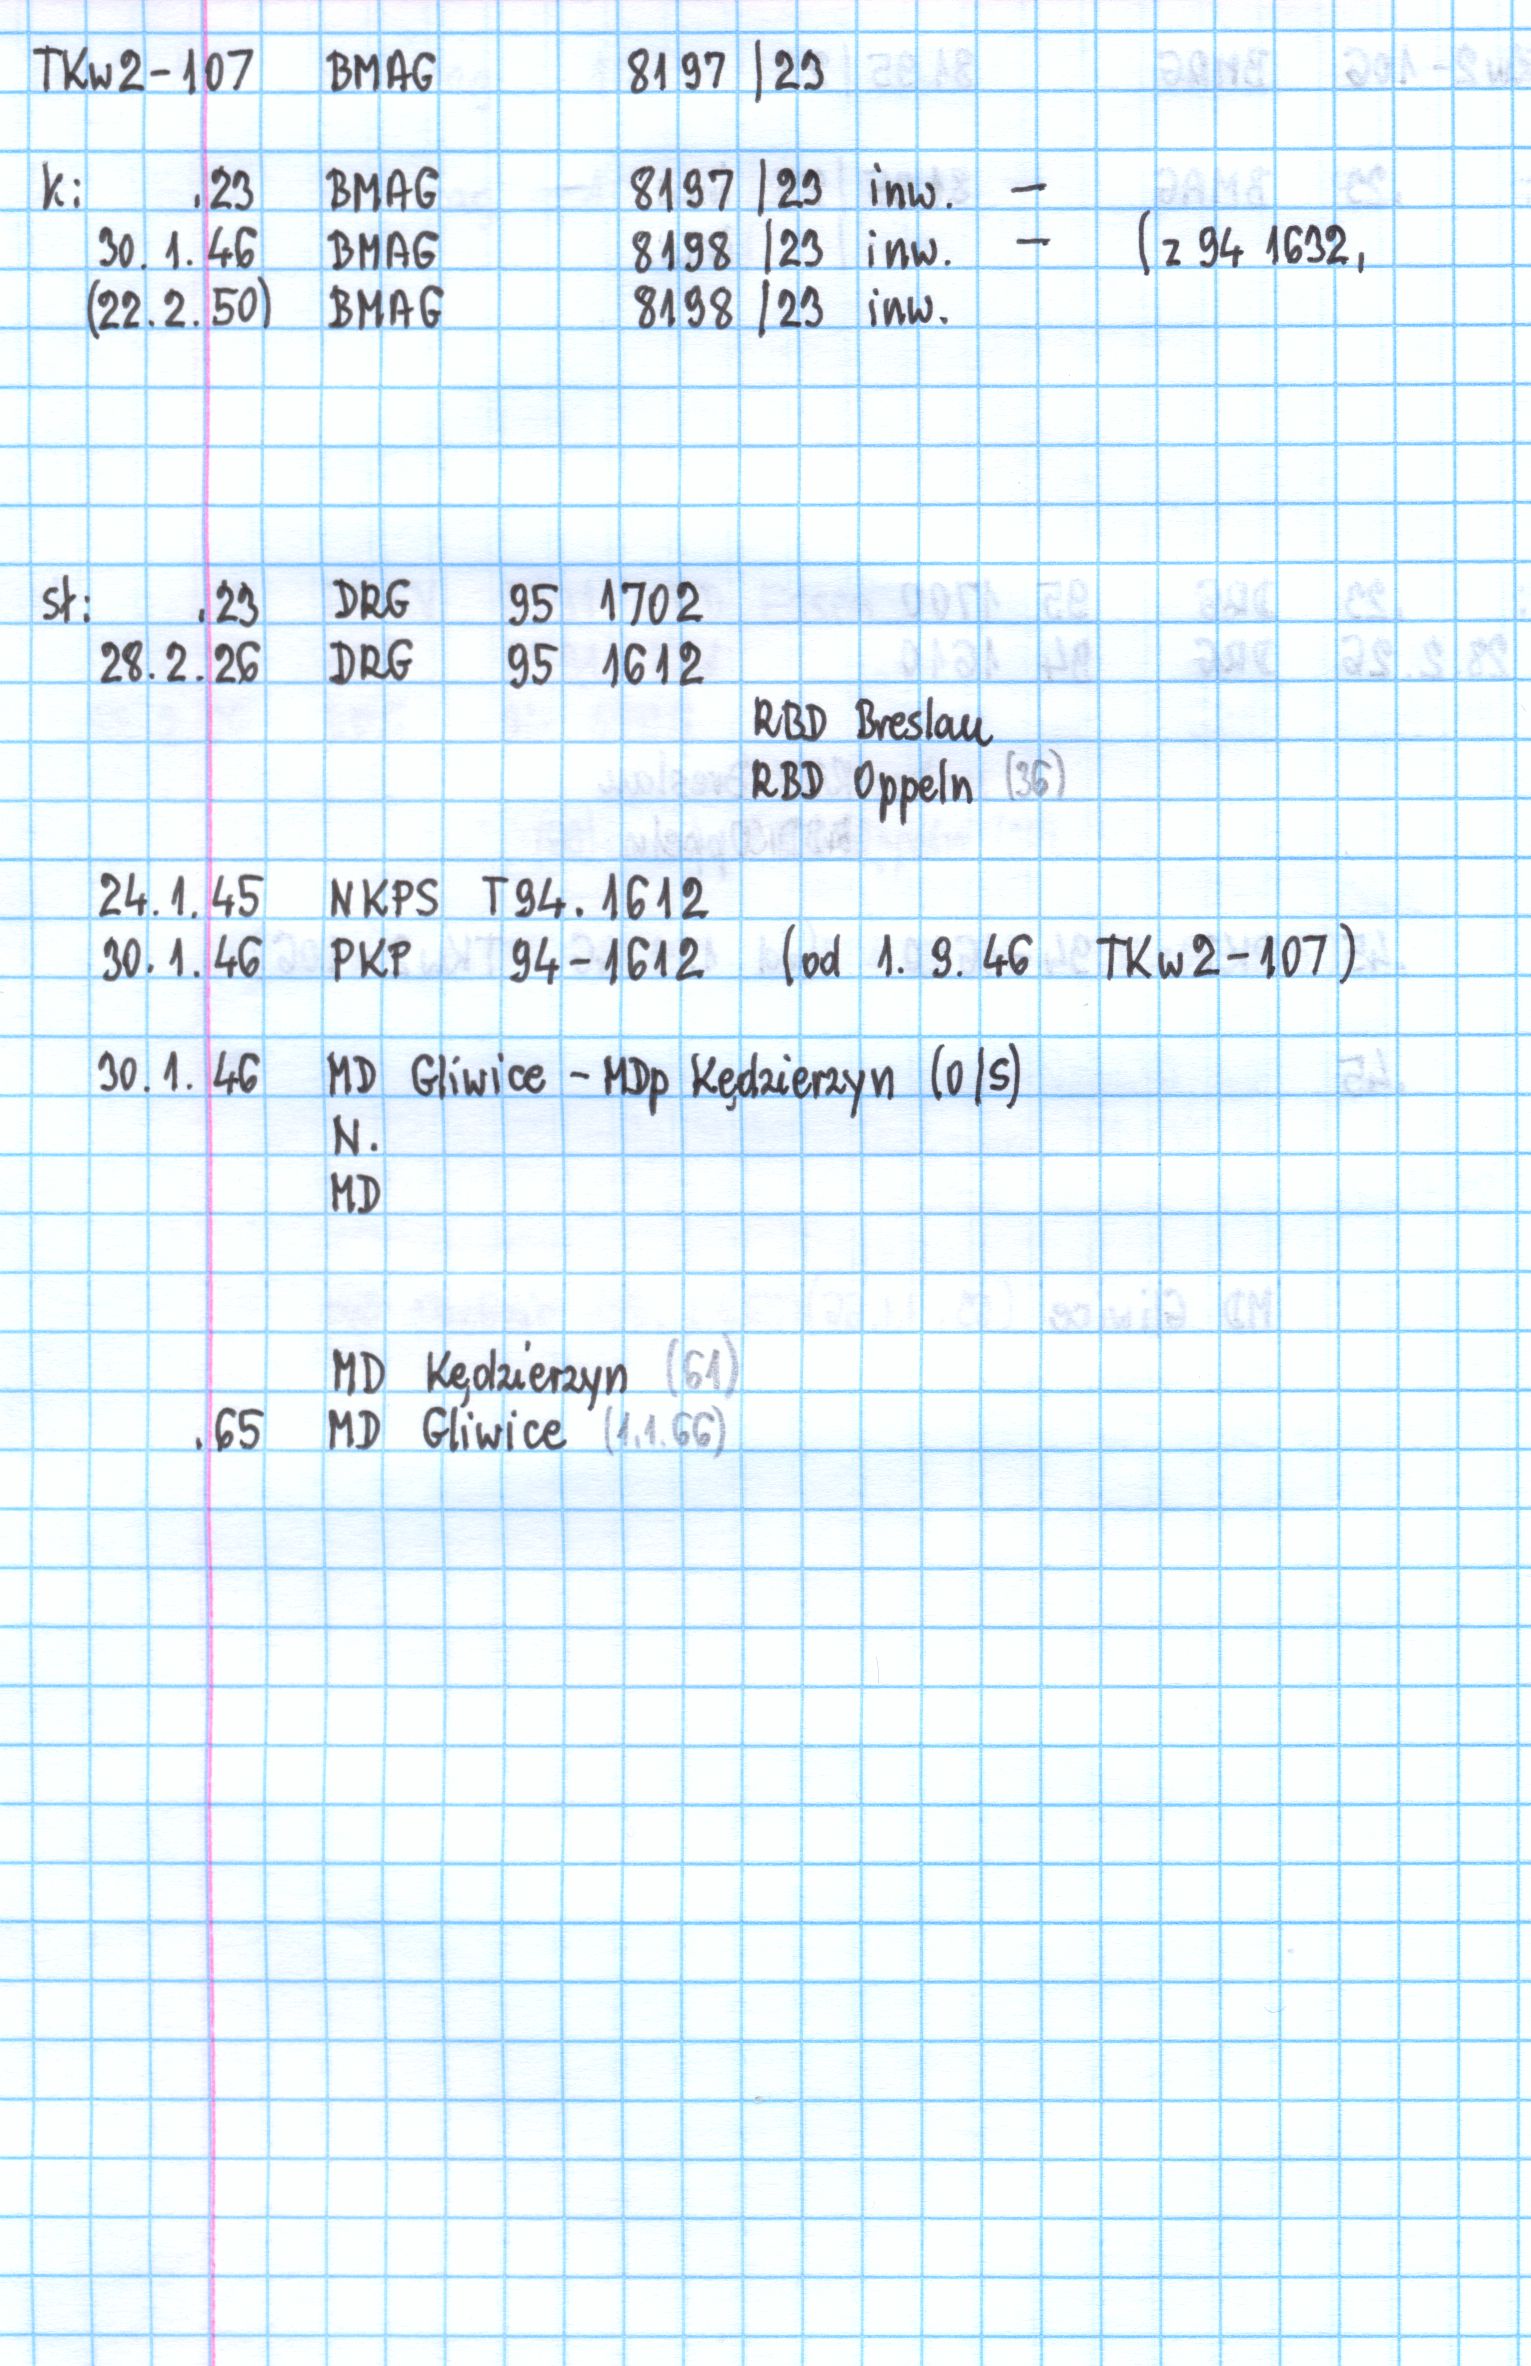 TKw2-107 BMAG 8197/23
k: .23 BMAG 8197/23 inw. -
30.1.46 BMAG 8198/23 inw. - (z 94 1632,
(22.2.50) BMAG 8198/23 inw.
st: .23 DRG 95 1702
28.2.26 DRG 95 1612
RBD Breslau
RBD Oppeln (36)
24.1.45 NKPS T94.1612
30.1.46 PKP 94-1612 (od 1.9.46 TKw2-107)
30.1.46 MD Gliwice - MDp Kędzierzyn (O/S)
N.
MD
MD Kędzierzyn (61)
.65 MD Gliwice (1.1.66)